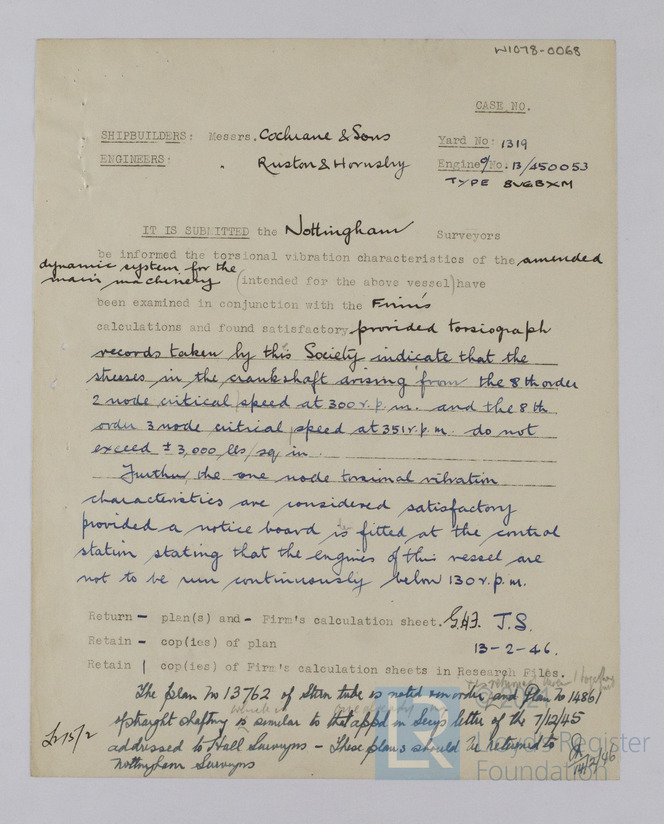 W1078-0068
CASE NO.
SHIPBUILDERS: Messrs. Cochrane & Sons Yard No: 1319
ENGINEERS: " Ruston & Hornsby Engine o/No: B/450053
TYPE 8VGBXM
IT IS SUBMITTED the Nottingham Surveyors
be informed the torsional vibration characteristics of the amended
dynamic system for the
main machinery (intended for the above vessel) have
been examined in conjunction with the Firm's
calculations and found satisfactory provided torsiograph
records taken by this Society indicate that the
stresses in the crankshaft arising from the 8th order
2 node critical speed at 300 r.p.m. and the 8th
order 3 node critical speed at 351 r.p.m. do not
exceed ± 3,000 lbs/sq in.
Further, the one node torsional vibration
characteristics are considered satisfactory
provided a notice board is fitted at the control
station stating that the engines of this vessel are
not to be run continuously below 130 r.p.m.
Return - plan(s) and - Firm's calculation sheet. J.S.
Retain - cop(ies) of plan 13-2-46.
Retain 1 cop(ies) of Firm's calculation sheets in Research Files.
The plan No 13762 of Stern tube is noted in order, and Plan No 14861
of straight shafting which is similar to that appd in Secys letter of the 7/12/45
addressed to Hull Surveyors - These plans should be returned to
Nottingham Surveyors
14/2/46
15/2
© 2017
LR
Lloyd's Register
Foundation